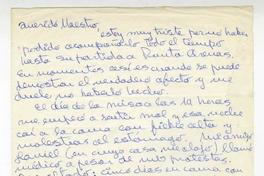 Querido Maestro:
estoy muy triste por no haber
podido acompañarlo todo el tiempo
hasta su partida a Punta Arenas,
en momentos así es cuando se puede
demostrar el verdadero afecto y me
duele no haberlo hecho.
El día de la misa a las 19 horas
me empecé a sentir mal y esa noche
caí a la cama con fiebre alta y
molestias al estómago. Mi amigo
Daniel (en cuya casa me alojo) llamó
médico a pesar de mis protestas.
cinco días en cama con